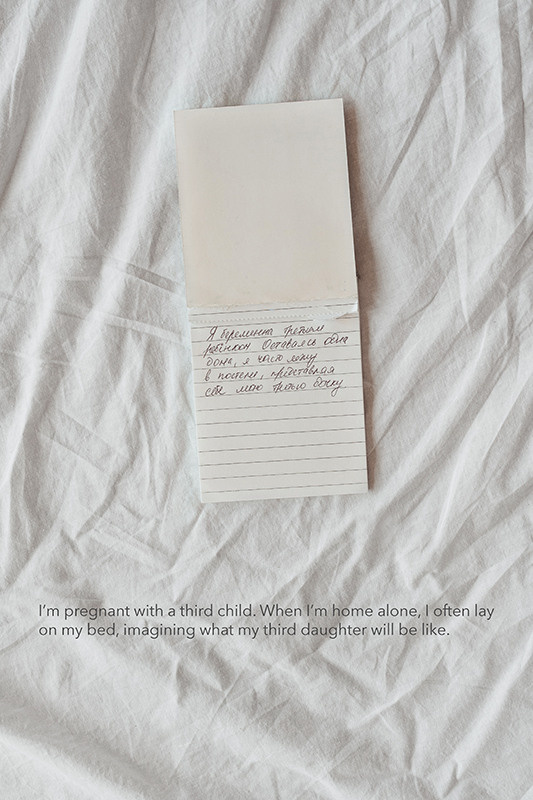 Я беременна третьим
ребёнком Оставаясь одна
дома, я часто лежу
в постеле, представляя
себе мою третью дочку
I’m pregnant with a third child. When I’m home alone, I often lay
on my bed, imagining what my third daughter will be like.